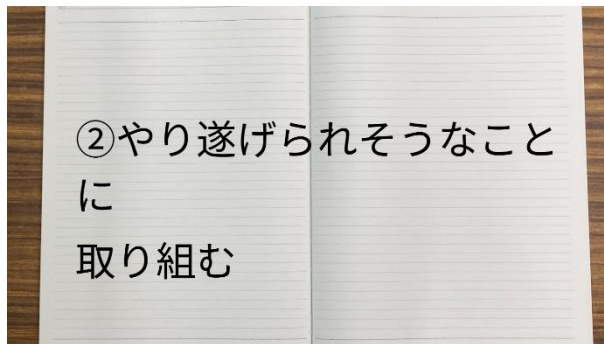 ②やり遂げられそうなこと
に
取り組む